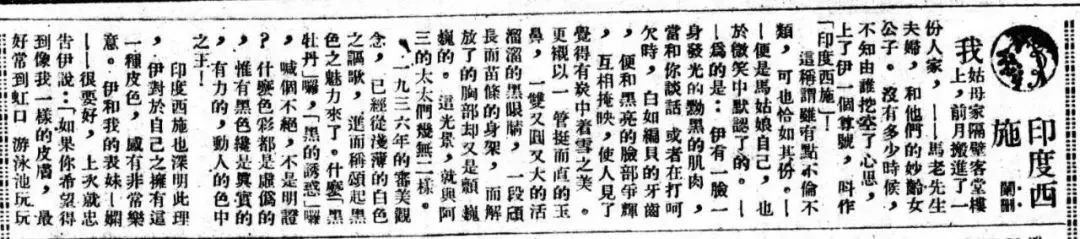 印度西
施
我姑母家隔壁客堂樓
上,前月搬進了一
份人家,——馬老先生
夫婦,和他們的妙齡女
公子。沒有多少時候,
不知由誰挖空了心思,
上了伊一個尊號,叫作
「印度西施」!
這稱謂雖有點不倫不
類,可也恰如其份。—
—便是馬姑娘自己,也
於微笑中默認了的。—
—爲的是:伊有一臉一
身發光的黝黑的肌肉,
當和你談話 或者在打呵
欠時,白如編貝的牙齒
,便和黑亮的臉部爭輝
,互相掩映,使人見了
覺得有炭中着雪之美。
更襯以一管挺而直的玉
鼻,一雙又圓又大的活
溜溜的黑眼睛,一段頎
長而苗條的身架,而解
放了的胸部却又是顫巍
巍的。這光景,就與阿
三的太太們幾無二樣。
一九三六年的審美觀
念,已經從淺薄的白色
之謳歌,進而稱頌起黑
色之魅力來了。什麼「黑
牡丹」囉,「黑的誘惑」囉
,喊個不絕,不是明證
?什麼色彩都是虛僞的
,惟有黑色纔是眞實的
,有力的,動人的色中
之王!
印度西施也深明此理
,伊對於自己之擁有這
一種皮色,感有非常樂
意。伊和我的表妹—嫻
——很要好,上次就忠
告伊說:如果你希望得
到像我一樣的皮膚,最
好常到虹口 游泳池玩玩